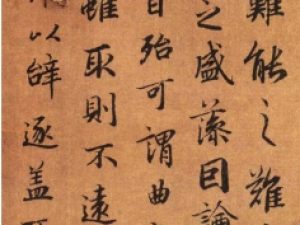 難能之難
之盛藻因論
日殆可謂曲
雖取則不遠
以辭逐盖